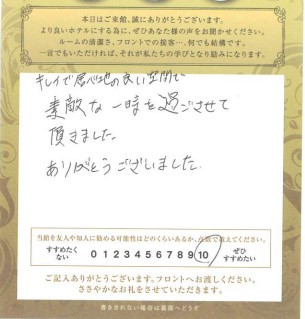 本日はご来館、誠にありがとうございます。
より良いホテルにする為に、ぜひあなた様の声をお聞かせください。
ルームの清潔さ、フロントでの接客…、何でも結構です。
一言でもいただければ、それが私たちの学びとなり励みになります。
キレイで居心地の良い空間で
素敵な一時を過ごさせて
頂きました。
ありがとうございました。
当館を友人や知人に勧める可能性はどのくらいあるか、点数で教えてください。
すすめたくない 0 1 2 3 4 5 6 7 8 9 10 ぜひすすめたい
ご記入ありがとうございます。フロントへお渡しください。
ささやかなお礼をさせていただきます。
書ききれない場合は裏面へどうぞ